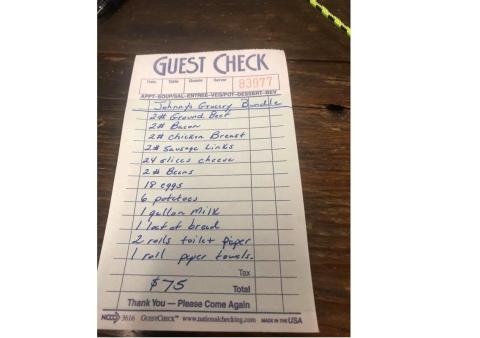 GUEST CHECK
Date Table Guests Server 83977
APPT-SOUP/SAL-ENTREE-VEG/POT-DESSERT-BEV
Johnny's Grocery Bundle
2# Ground Beef
2# Bacon
2# Chicken Breast
2# Sausage Links
24 slices cheese
2# Beans
18 eggs
6 potatoes
1 gallon Milk
1 loaf of bread
2 rolls toilet paper
1 roll paper towels.
Tax
$75 Total
Thank You — Please Come Again
NCCO 3616 GUESTCHECK™ www.nationalchecking.com MADE IN THE USA